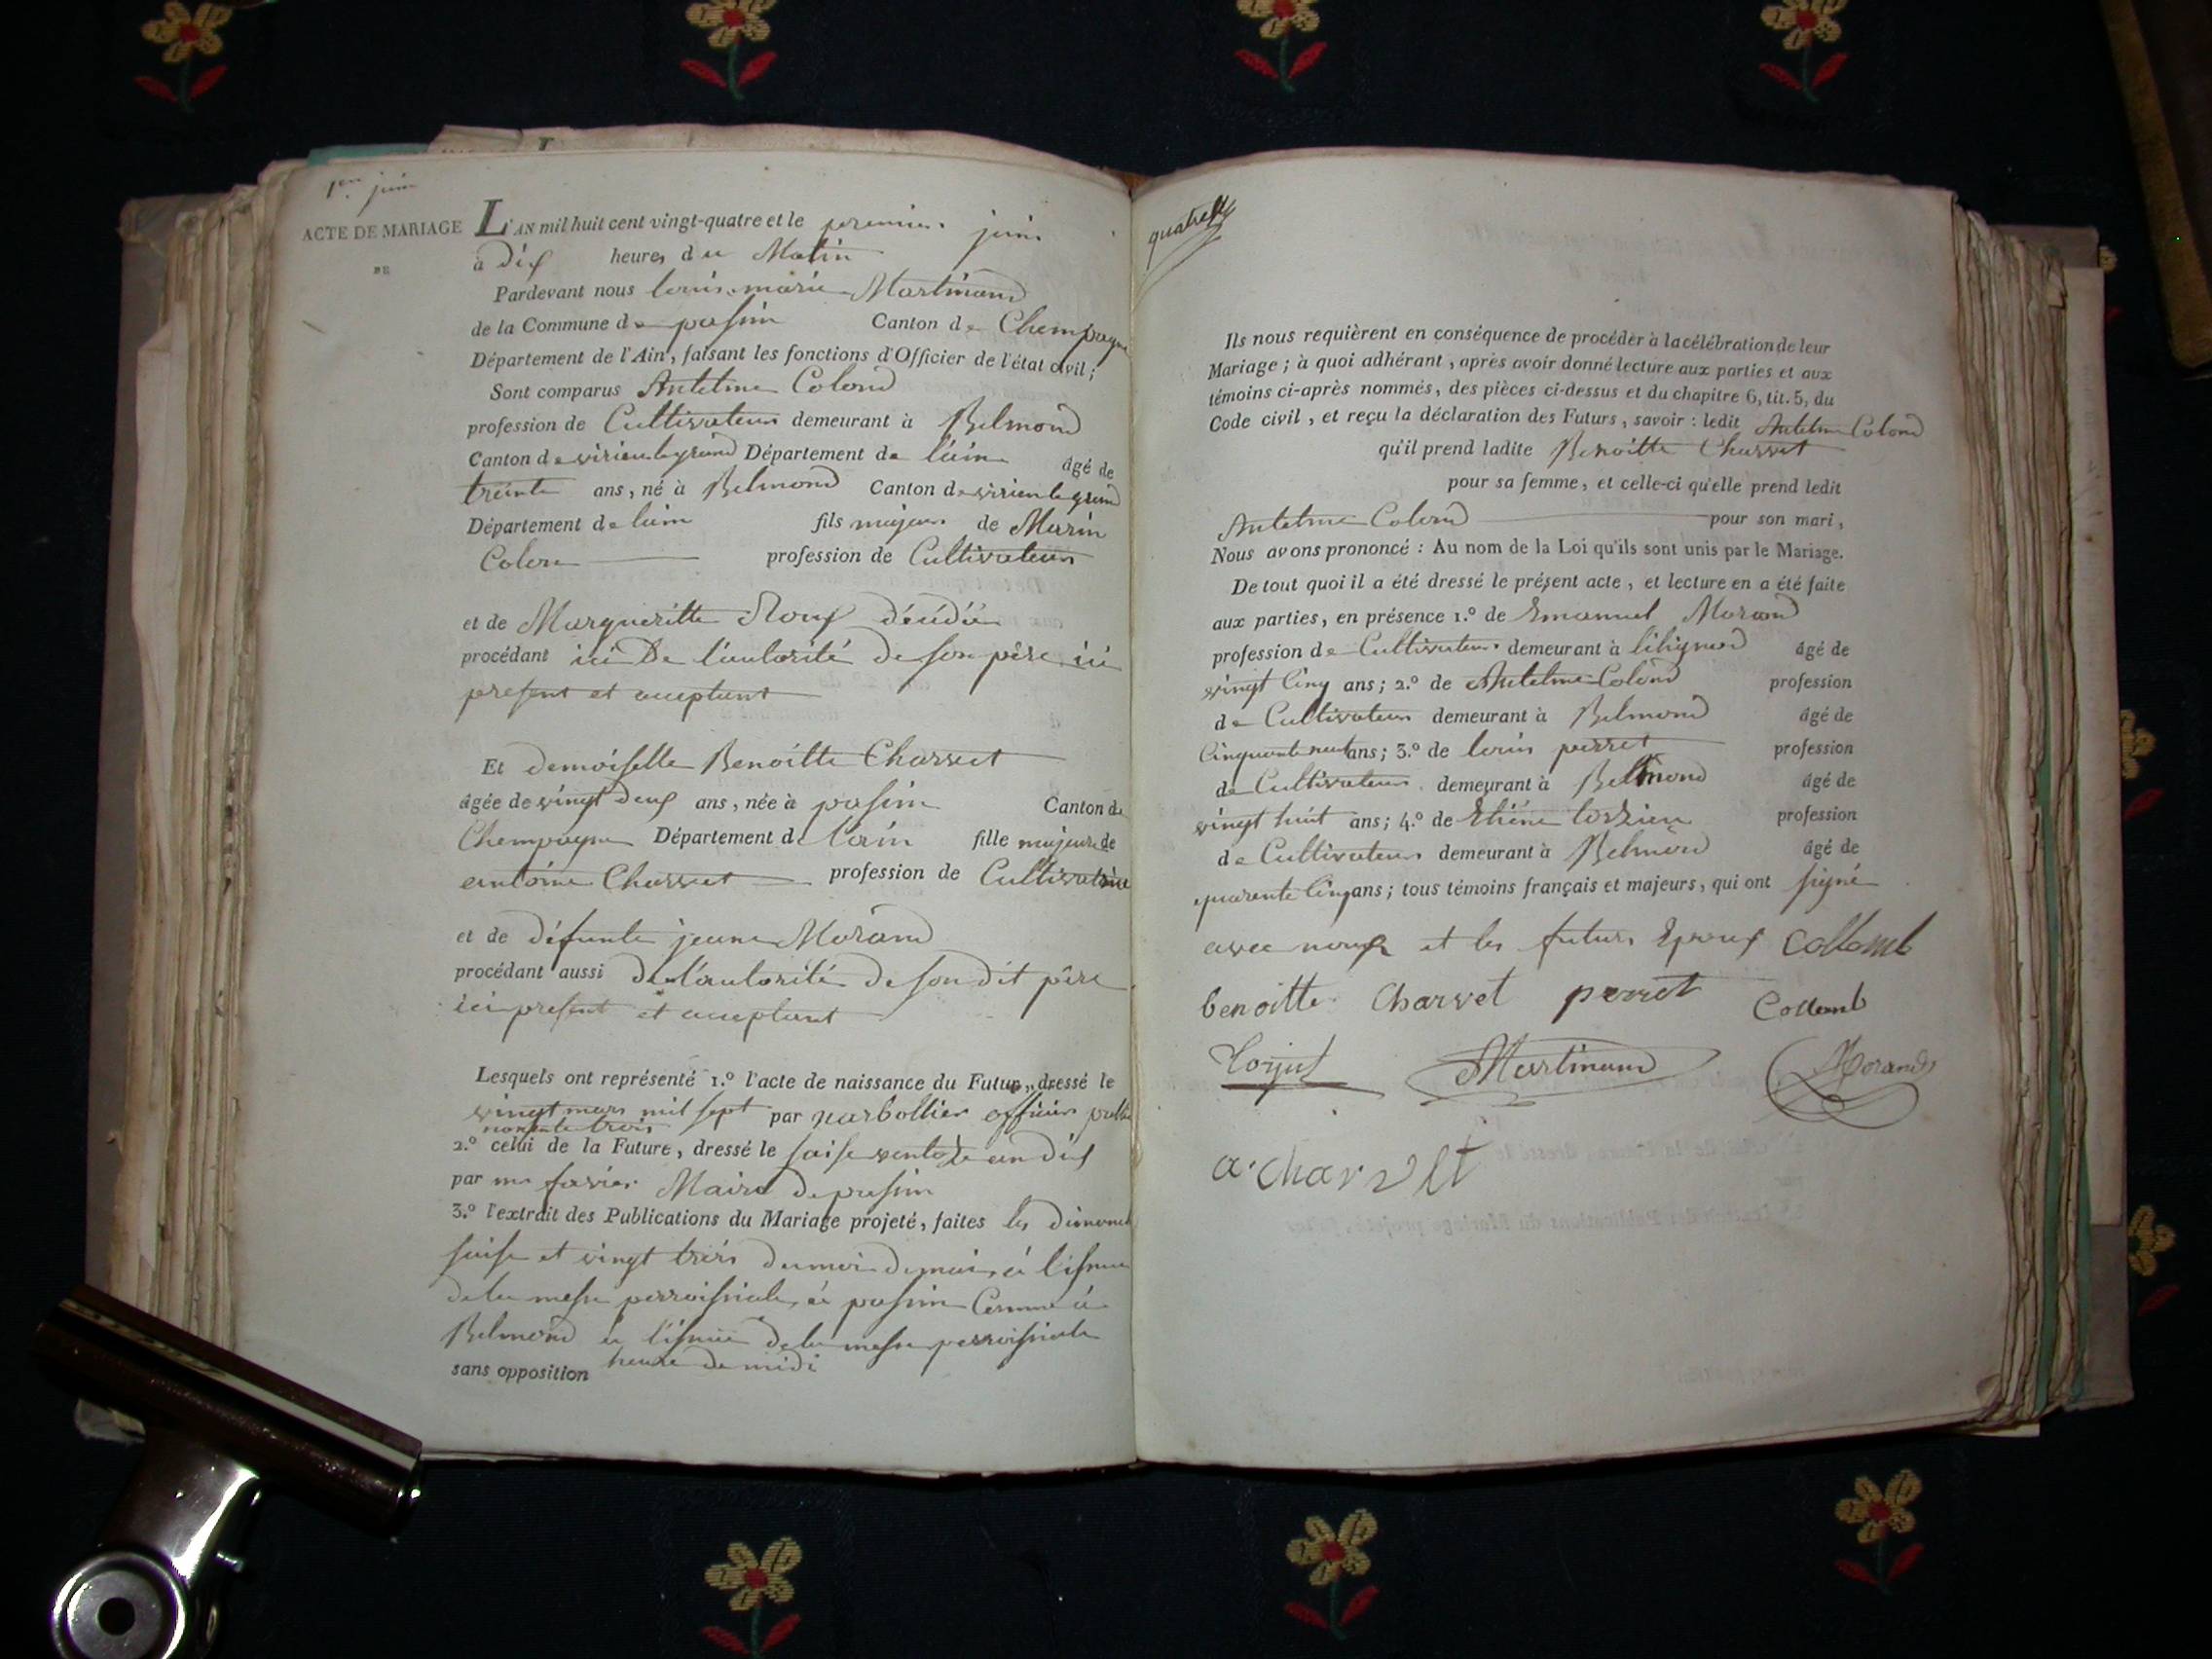 1er juin
ACTE DE MARIAGE
DE
L'AN mil huit cent vingt-quatre et le premier juin
à dix heures du Matin
Pardevant nous louis marie Martinand
de la Commune de passin Canton de Champagne
Département de l'Ain, faisant les fonctions d'Officier de l'état civil;
Sont comparus Antelme Colond
profession de Cultivateur demeurant à Belmond
Canton de virieu le grand Département de lain âgé de
trente ans, né à Belmond Canton de virieu le grand
Département de lain fils majeur de Marin
Colon profession de Cultivateur
et de Margueritte Roux décédée
procédant ici De l'autorité de son père ici
present et acceptant
Et demoiselle Benoitte Charvet
âgée de vingt deux ans, née à passin Canton de
Champagne Département de lain fille majeure de
antoine Charvet profession de
et de défunte jeane Morand
procédant aussi de l'autorité de son dit père
ici present et acceptant
Lesquels ont représenté 1.º l'acte de naissance du Futur, dressé le
vingt mars mil sept par officier
nonante trois
2.º celui de la Future, dressé le saise ventose an dix
par me favier Maire de passin
3.º l'extrait des Publications du Mariage projeté, faites les
saise et vingt trois du moi de mai, à l'issue
de la messe perroissiale, à passin Comme à
Belmond à l'issue de la messe perroissiale
sans opposition heure de midi
Ils nous requièrent en conséquence de procéder à la célébration de leur
Mariage; à quoi adhérant, après avoir donné lecture aux parties et aux
témoins ci-après nommés, des pièces ci-dessus et du chapitre 6, tit. 5, du
Code civil, et reçu la déclaration des Futurs, savoir: ledit Antelme Colond
qu'il prend ladite Benoitte Charvet
pour sa femme, et celle-ci qu'elle prend ledit
Antelme Colond pour son mari,
Nous avons prononcé: Au nom de la Loi qu'ils sont unis par le Mariage.
De tout quoi il a été dressé le présent acte, et lecture en a été faite
aux parties, en présence 1.º de Emanuel Morand
profession de Cultivateur demeurant à lilignod âgé de
vingt Cinq ans; 2.º de Antelme Colond profession
de Cultivateur demeurant à Belmond âgé de
Cinquante neuf ans; 3.º de louis perret profession
de Cultivateur demeurant à Belmond âgé de
vingt huit ans; 4.º de Etiéne profession
de Cultivateur demeurant à Belmond âgé de
quarente Cinq ans; tous témoins français et majeurs, qui ont signé
avec nous et les futurs Epoux Collomb
benoitte Charvet perret Collomb
Martinand Morand
a. charvet